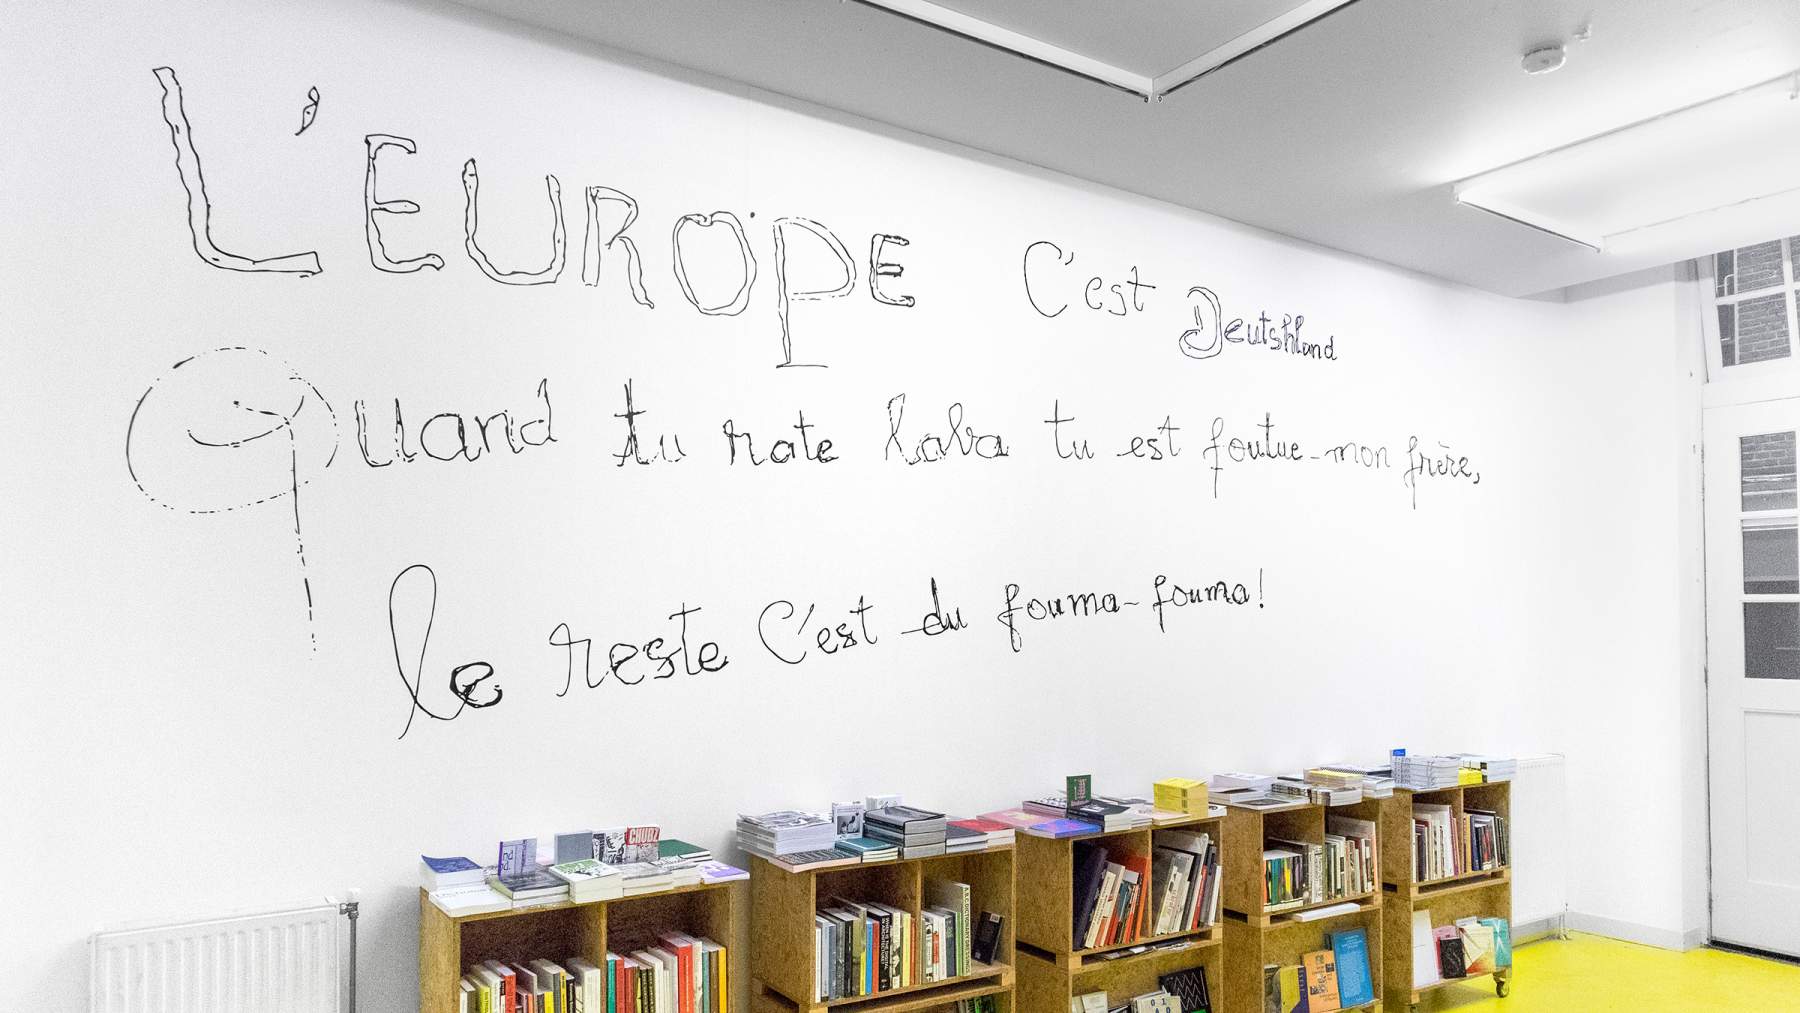 L'EUROPE C'est Deutshland
Quand tu rate laba tu est foutue-mon frère,
le reste c'est du fouma-fouma!
CHUBZ